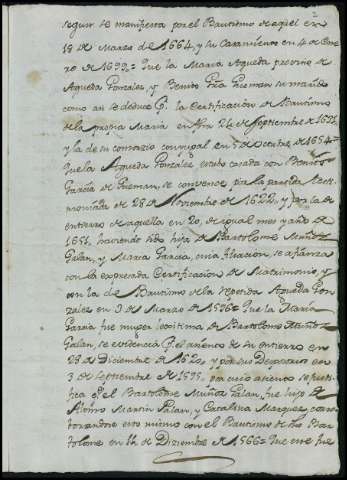 2
segun se manifiesta por el Bautismo de aquel en
18 de Marzo de 1664, y su Casamiento en 4 de Ene-
ro de 1699 = Que la María Agueda provino de
Agueda Gonzalez y Benito Grã Guzman su marido
como asi se deduce P. la Certificacion de Bautismo
de la propia Maria en fha 24 de Septiembre de
y la de su consorcio conyugal en 5 de octre. de 1654 =
Que la Agueda Gonzalez estubo casada con Benito
Garcia de Guzman, se convence por la partida testi-
moniada de 28 de Noviembre de 1622, y por la de
entierro de aquella en 20 de igual mes y año de
1651, haciendo sido hija de Bartolome Muñoz
Galan, y Maria Garcia, una filiacion se afianza
con la expresada Certificacion de Matrimonio, y
con la de Bautismo de la repetida Agueda Gon-
zalez en 3 de Marzo de 1596 = Que la Maria
Garcia fue muger lexitima de Bartolome Muñoz
Galan, se evidencia P. el asiento de su entierro en
28 de Diciembre de 1620, y por sus Desposorios en
3 de Septiembre de 1595, por cuio asiento se justi-
fica q.e el Bartolome Muñoz Galan fue hijo de
Alonso Martin Galan, y Catalina Marquez, corro-
borandose esto mismo con el Bautismo de dho Bar-
tolome en 14 de Diziembre de 1566 = Que este fue